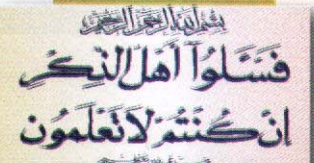 بِسْمِ اللَّهِ الرَّحْمَنِ الرَّحِيمِ
فَسْـَٔلُوٓا أَهْلَ الذِّكْرِ
إِنْ كُنْتُمْ لَا تَعْلَمُونَ